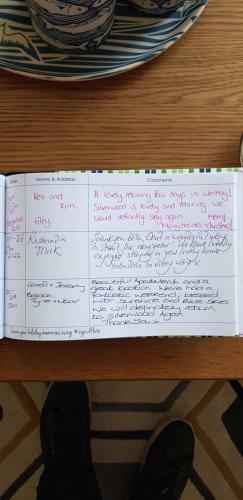 Date Name & Address Comments
Kev and
Kim.
Filey
A lovely relaxing few days in whitby!
Silverwood is lovely and relaxing, we
would definatly stay again. Merry
Many thanks & christmas!
2022
Rosannda
Mick
Thankyou both, what a wonderful way
to start the new year! We have totally
enjoyed staying in your lovely home
from home in every way x
28
Carol + Jeremy
Tyne + Wear
Beautiful Apartments and a
great location. We have had a
fantastic weekend, blessed
with sunshine and blue skies
we will definitely return
to silverwood again.
Thank You x
Share your holiday memories using